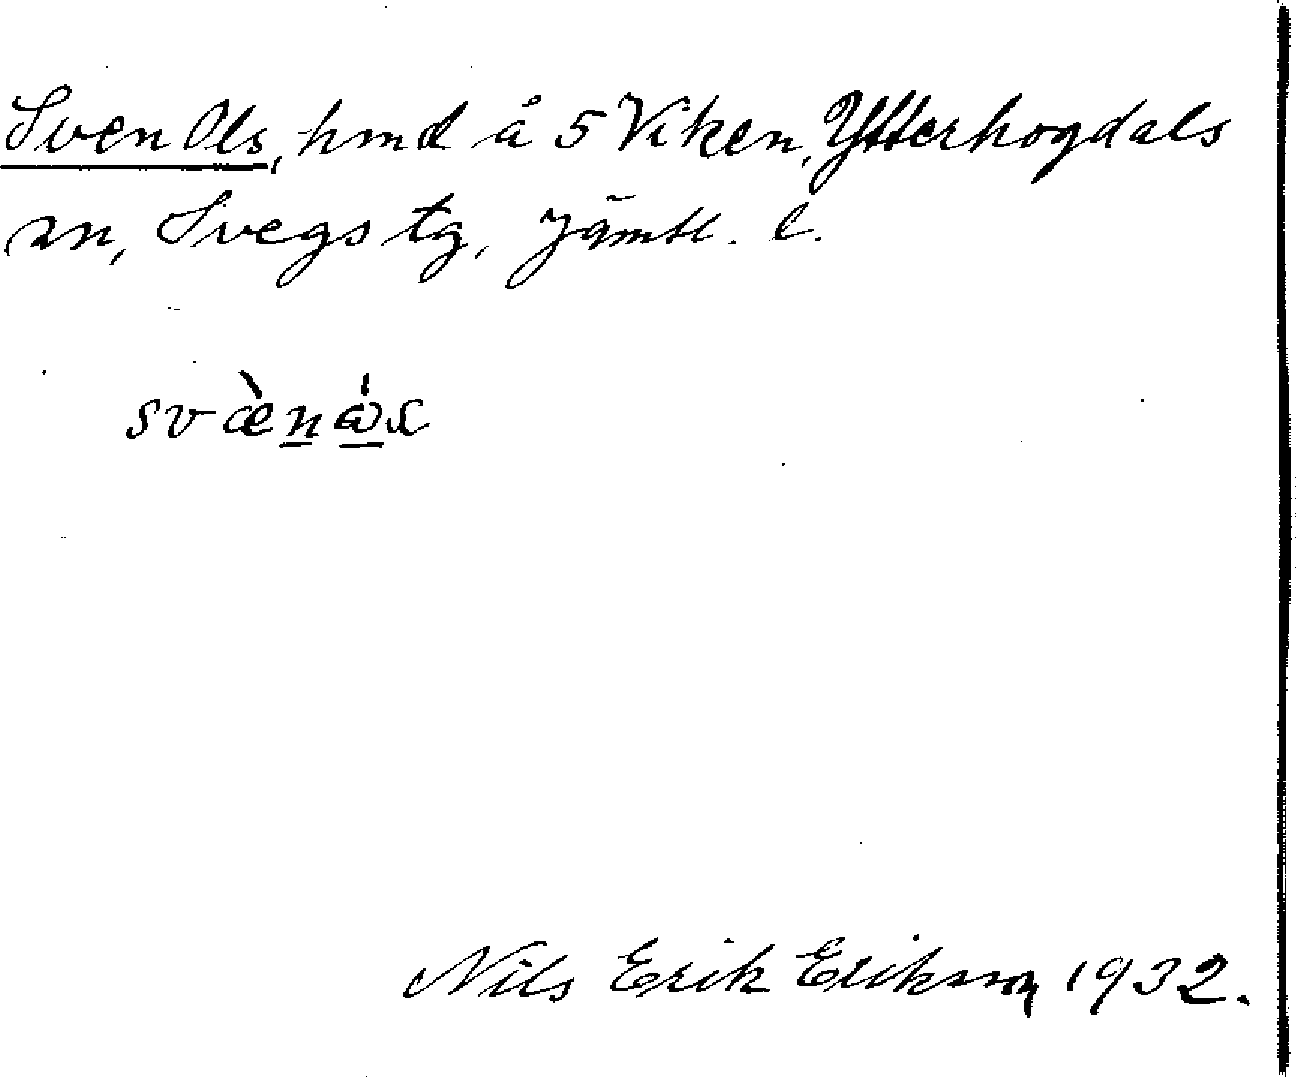 Sven Ols, hmd å 5 Viken, Ytterhogdals
sn, Svegs tg, Jämtl. l.
svæ̀nω̇s
Nils Erik Erikson 1932.